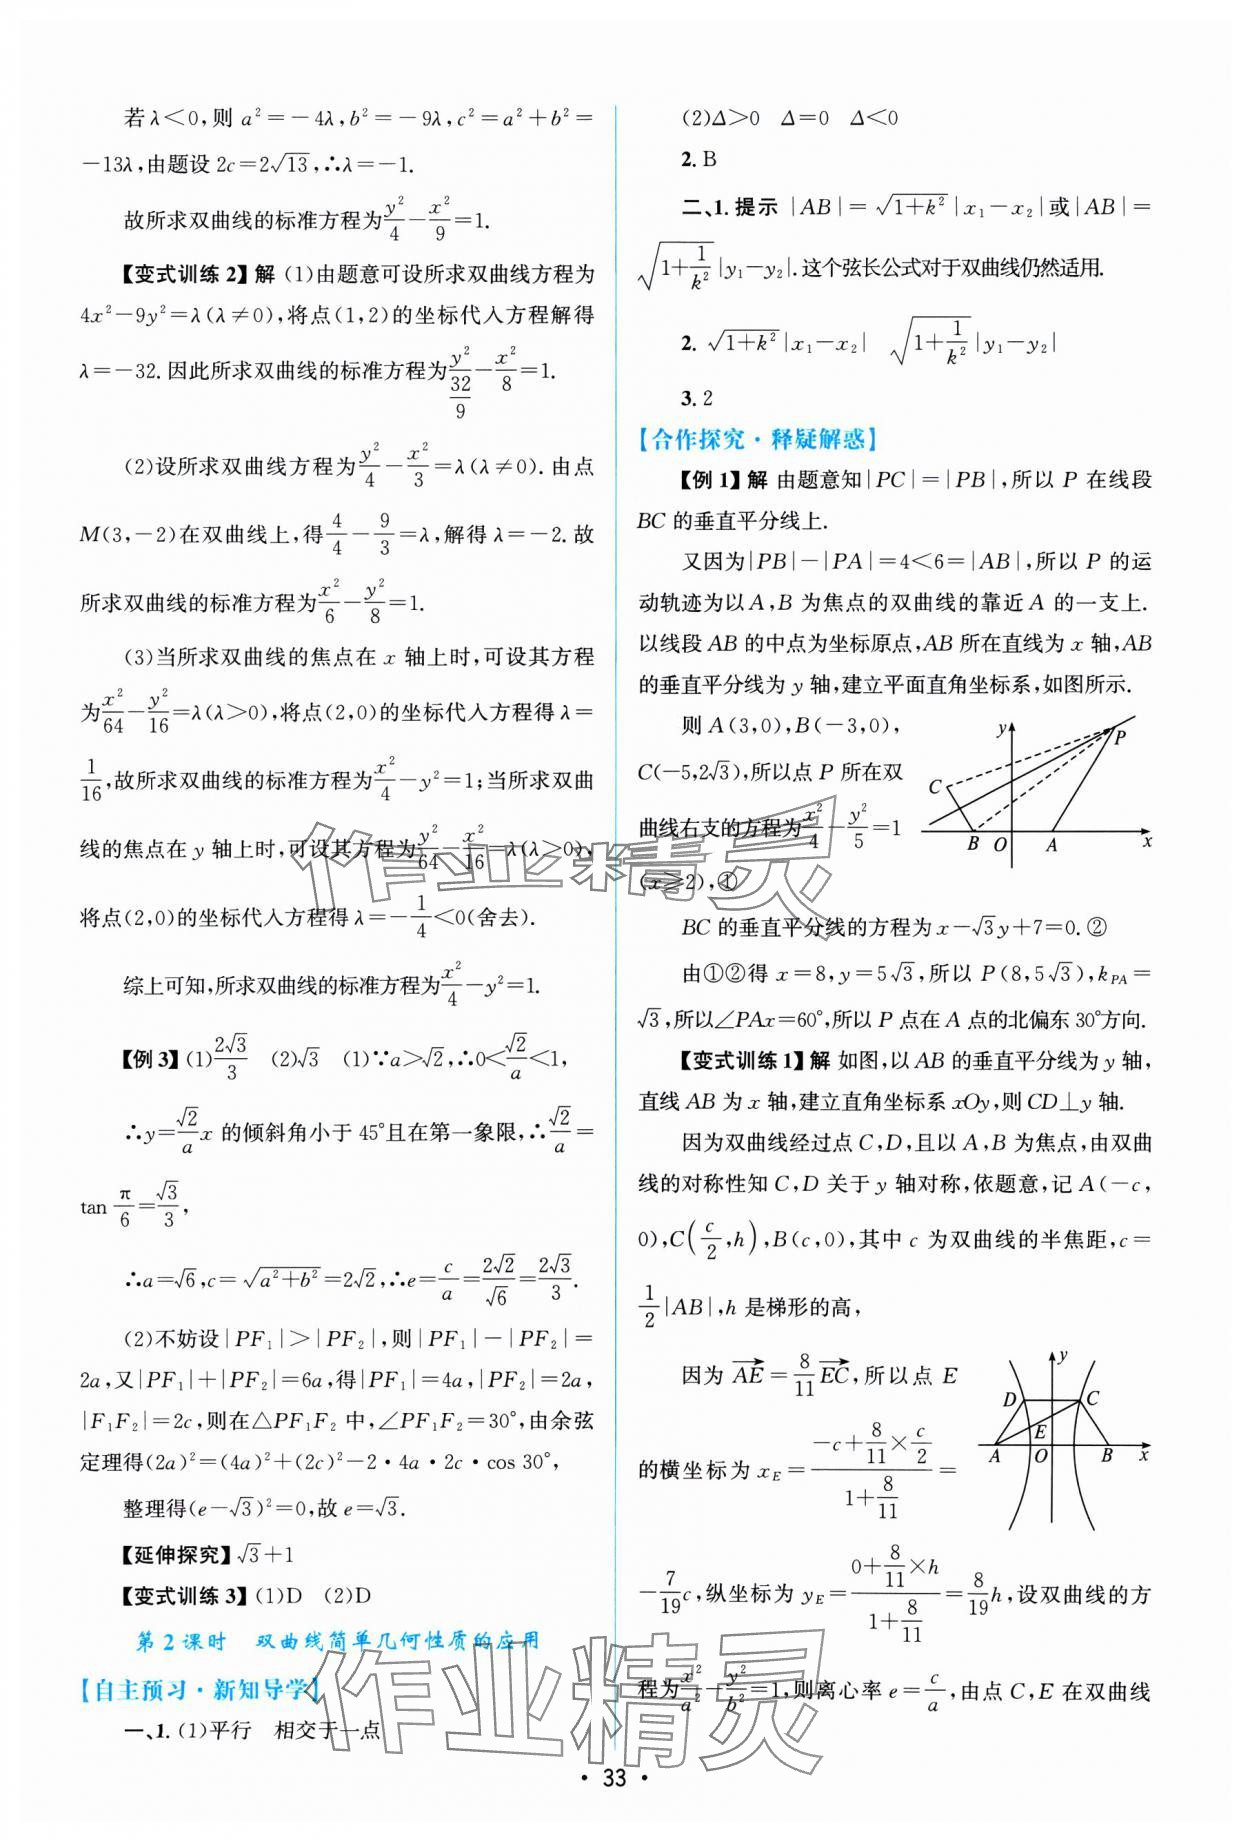 若λ<0,则a²=-4λ,b²=-9λ,c²=a²+b²=
-13λ,由题设2c=2√13,∴λ=-1.
故所求双曲线的标准方程为y²/4-x²/9=1.
【变式训练2】解 (1)由题意可设所求双曲线方程为
4x²-9y²=λ(λ≠0),将点(1,2)的坐标代入方程解得
λ=-32.因此所求双曲线的标准方程为y²/(32/9)-x²/8=1.
(2)设所求双曲线方程为y²/4-x²/3=λ(λ≠0).由点
M(3,-2)在双曲线上,得4/4-9/3=λ,解得λ=-2.故
所求双曲线的标准方程为x²/6-y²/8=1.
(3)当所求双曲线的焦点在x轴上时,可设其方程
为x²/64-y²/16=λ(λ>0),将点(2,0)的坐标代入方程得λ=
1/16,故所求双曲线的标准方程为x²/4-y²=1;当所求双曲
线的焦点在y轴上时,可设其方程为y²/64-x²/16=λ(λ>0),
将点(2,0)的坐标代入方程得λ=-1/4<0(舍去).
综上可知,所求双曲线的标准方程为x²/4-y²=1.
【例3】(1)2√3/3 (2)√3 (1)∵a>√2,∴0<√2/a<1,
∴y=√2/a x的倾斜角小于45°且在第一象限,∴√2/a=
tan π/6=√3/3,
∴a=√6,c=√(a²+b²)=2√2,∴e=c/a=2√2/√6=2√3/3.
(2)不妨设|PF₁|>|PF₂|,则|PF₁|-|PF₂|=
2a,又|PF₁|+|PF₂|=6a,得|PF₁|=4a,|PF₂|=2a,
|F₁F₂|=2c,则在△PF₁F₂中,∠PF₁F₂=30°,由余弦
定理得(2a)²=(4a)²+(2c)²-2·4a·2c·cos 30°,
整理得(e-√3)²=0,故e=√3.
【延伸探究】√3+1
【变式训练3】(1)D (2)D
第2课时 双曲线简单几何性质的应用
【自主预习·新知导学】
一、1.(1)平行 相交于一点
(2)Δ>0 Δ=0 Δ<0
2.B
二、1.提示 |AB|=√(1+k²)|x₁-x₂|或|AB|=
√(1+1/k²)|y₁-y₂|.这个弦长公式对于双曲线仍然适用.
2.√(1+k²)|x₁-x₂| √(1+1/k²)|y₁-y₂|
3.2
【合作探究·释疑解惑】
【例1】解 由题意知|PC|=|PB|,所以P在线段
BC的垂直平分线上.
又因为|PB|-|PA|=4<6=|AB|,所以P的运
动轨迹为以A,B为焦点的双曲线的靠近A的一支上.
以线段AB的中点为坐标原点,AB所在直线为x轴,AB
的垂直平分线为y轴,建立平面直角坐标系,如图所示.
则A(3,0),B(-3,0),
C(-5,2√3),所以点P所在双
曲线右支的方程为x²/4-y²/5=1
(x≥2),①
y
P
C
B O A x
BC的垂直平分线的方程为x-√3y+7=0.②
由①②得x=8,y=5√3,所以P(8,5√3),kPA=
√3,所以∠PAx=60°,所以P点在A点的北偏东30°方向.
【变式训练1】解 如图,以AB的垂直平分线为y轴,
直线AB为x轴,建立直角坐标系xOy,则CD⊥y轴.
因为双曲线经过点C,D,且以A,B为焦点,由双曲
线的对称性知C,D关于y轴对称,依题意,记A(-c,
0),C(c/2,h),B(c,0),其中c为双曲线的半焦距,c=
1/2|AB|,h是梯形的高,
因为AE→=8/11 EC→,所以点E
的横坐标为xE=(-c+8/11×c/2)/(1+8/11)=
y
D C
E
A O B x
-7/19c,纵坐标为yE=(0+8/11×h)/(1+8/11)=8/19h,设双曲线的方
程为x²/a²-y²/b²=1,则离心率e=c/a,由点C,E在双曲线
作业精灵
作业精灵
·33·